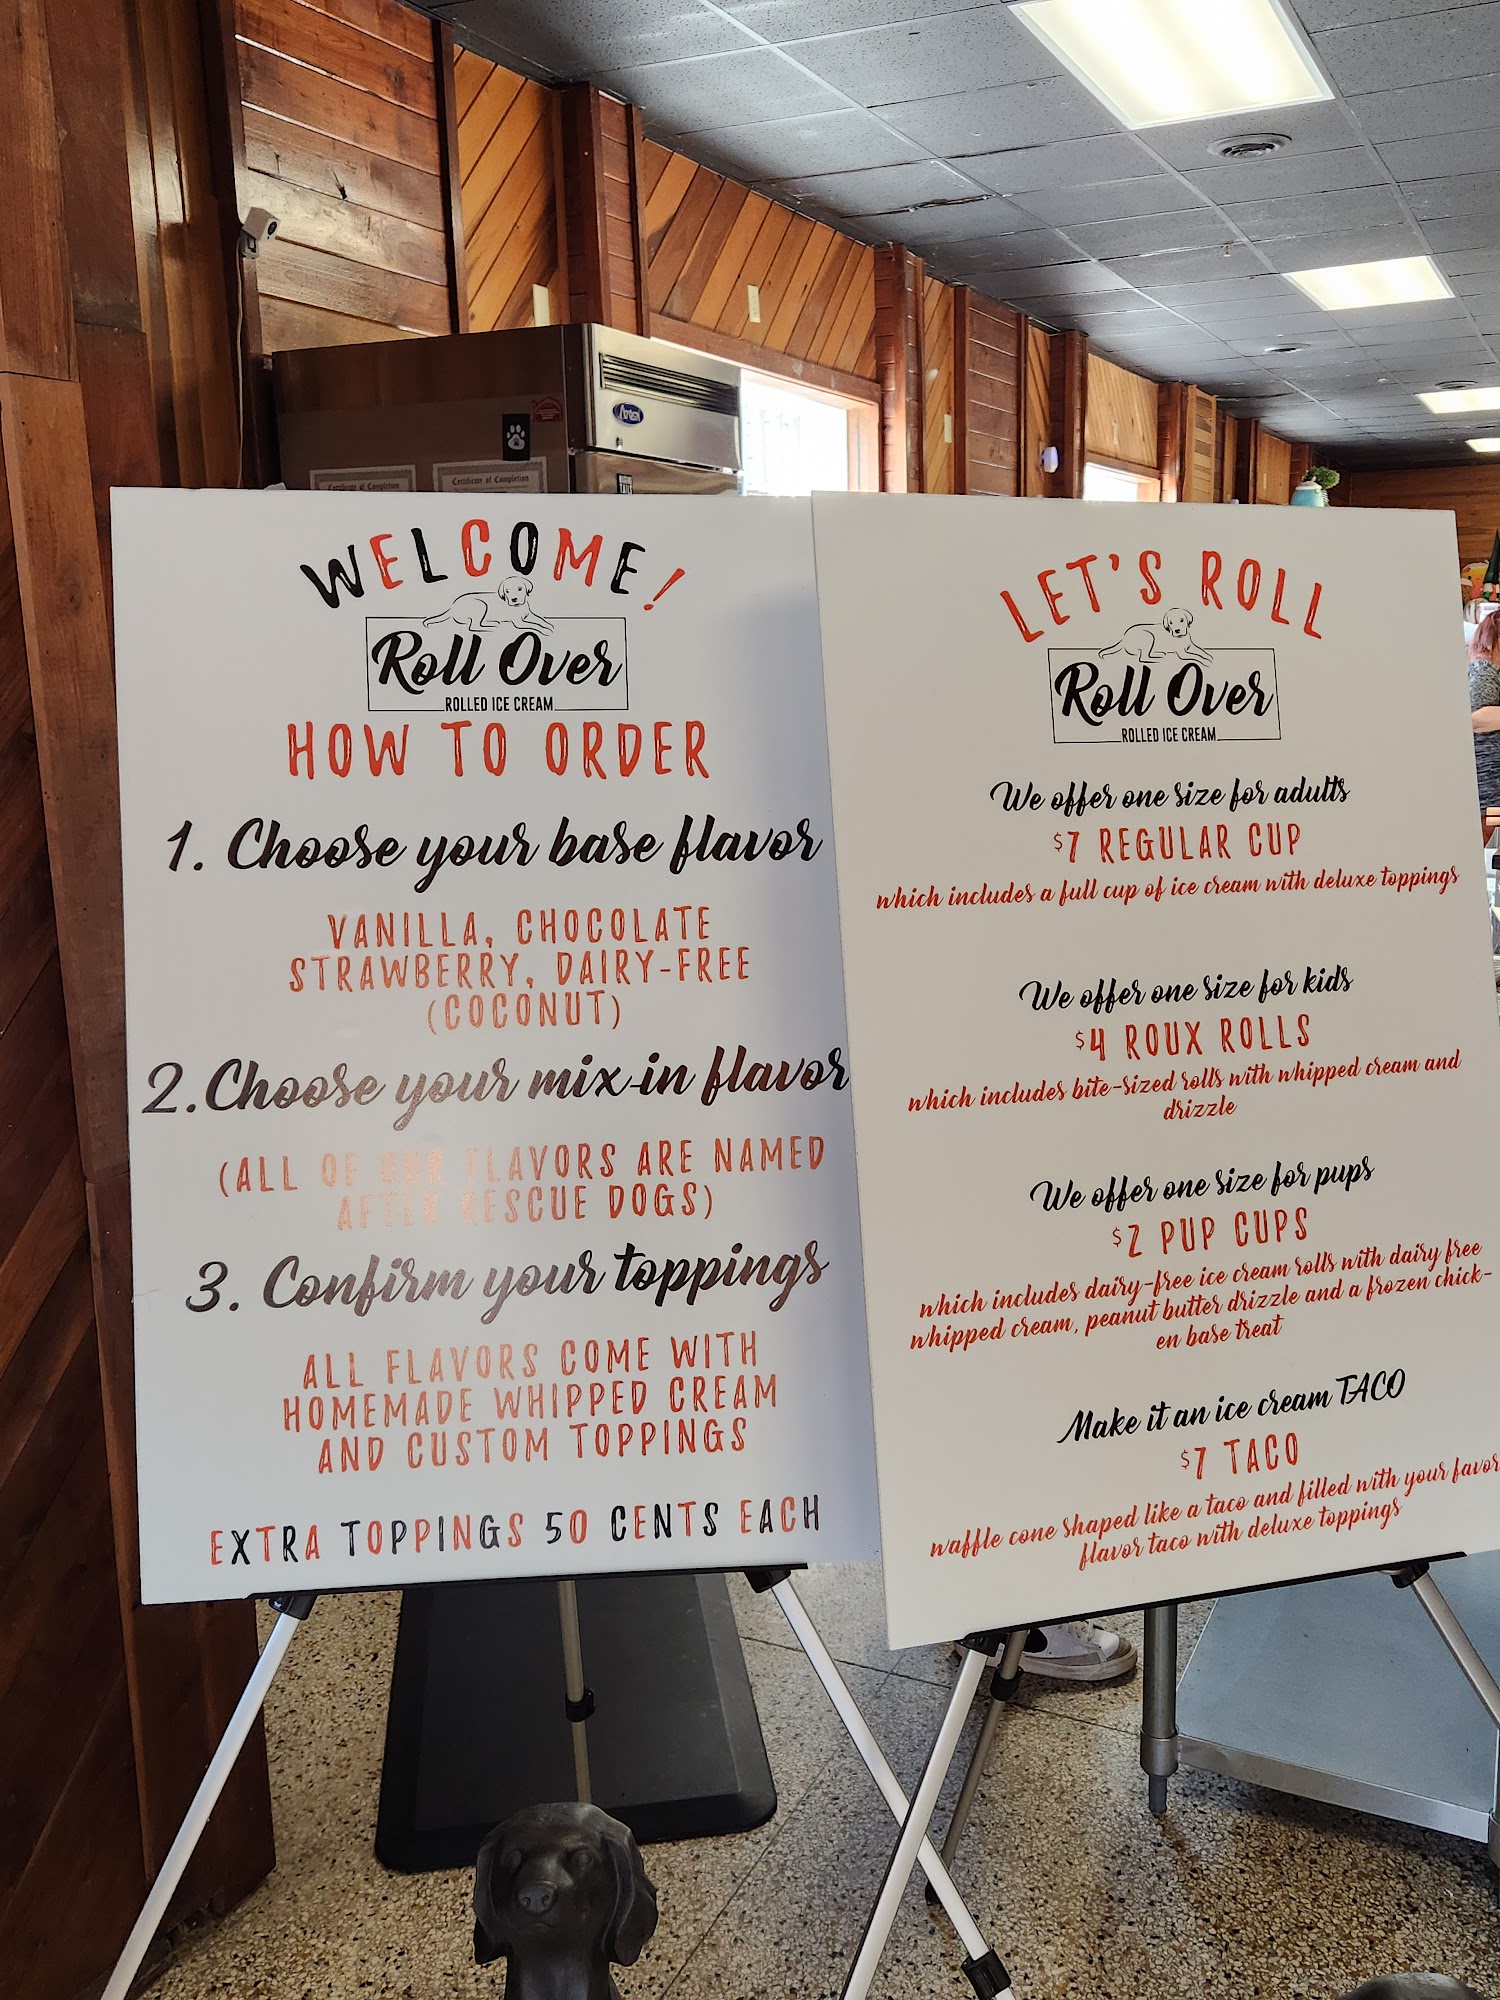 Atosa
Certificate of Completion
Certificate of Completion
WELCOME!
Roll Over
ROLLED ICE CREAM
HOW TO ORDER
1. Choose your base flavor
VANILLA, CHOCOLATE
STRAWBERRY, DAIRY-FREE
(COCONUT)
2. Choose your mix-in flavor
(ALL OF OUR FLAVORS ARE NAMED
AFTER RESCUE DOGS)
3. Confirm your toppings
ALL FLAVORS COME WITH
HOMEMADE WHIPPED CREAM
AND CUSTOM TOPPINGS
EXTRA TOPPINGS 50 CENTS EACH
LET'S ROLL
Roll Over
ROLLED ICE CREAM
We offer one size for adults
$7 REGULAR CUP
which includes a full cup of ice cream with deluxe toppings
We offer one size for kids
$4 ROUX ROLLS
which includes bite-sized rolls with whipped cream and
drizzle
We offer one size for pups
$2 PUP CUPS
which includes dairy-free ice cream rolls with dairy free
whipped cream, peanut butter drizzle and a frozen chick-
en base treat
Make it an ice cream TACO
$7 TACO
waffle cone shaped like a taco and filled with your favor
flavor taco with deluxe toppings